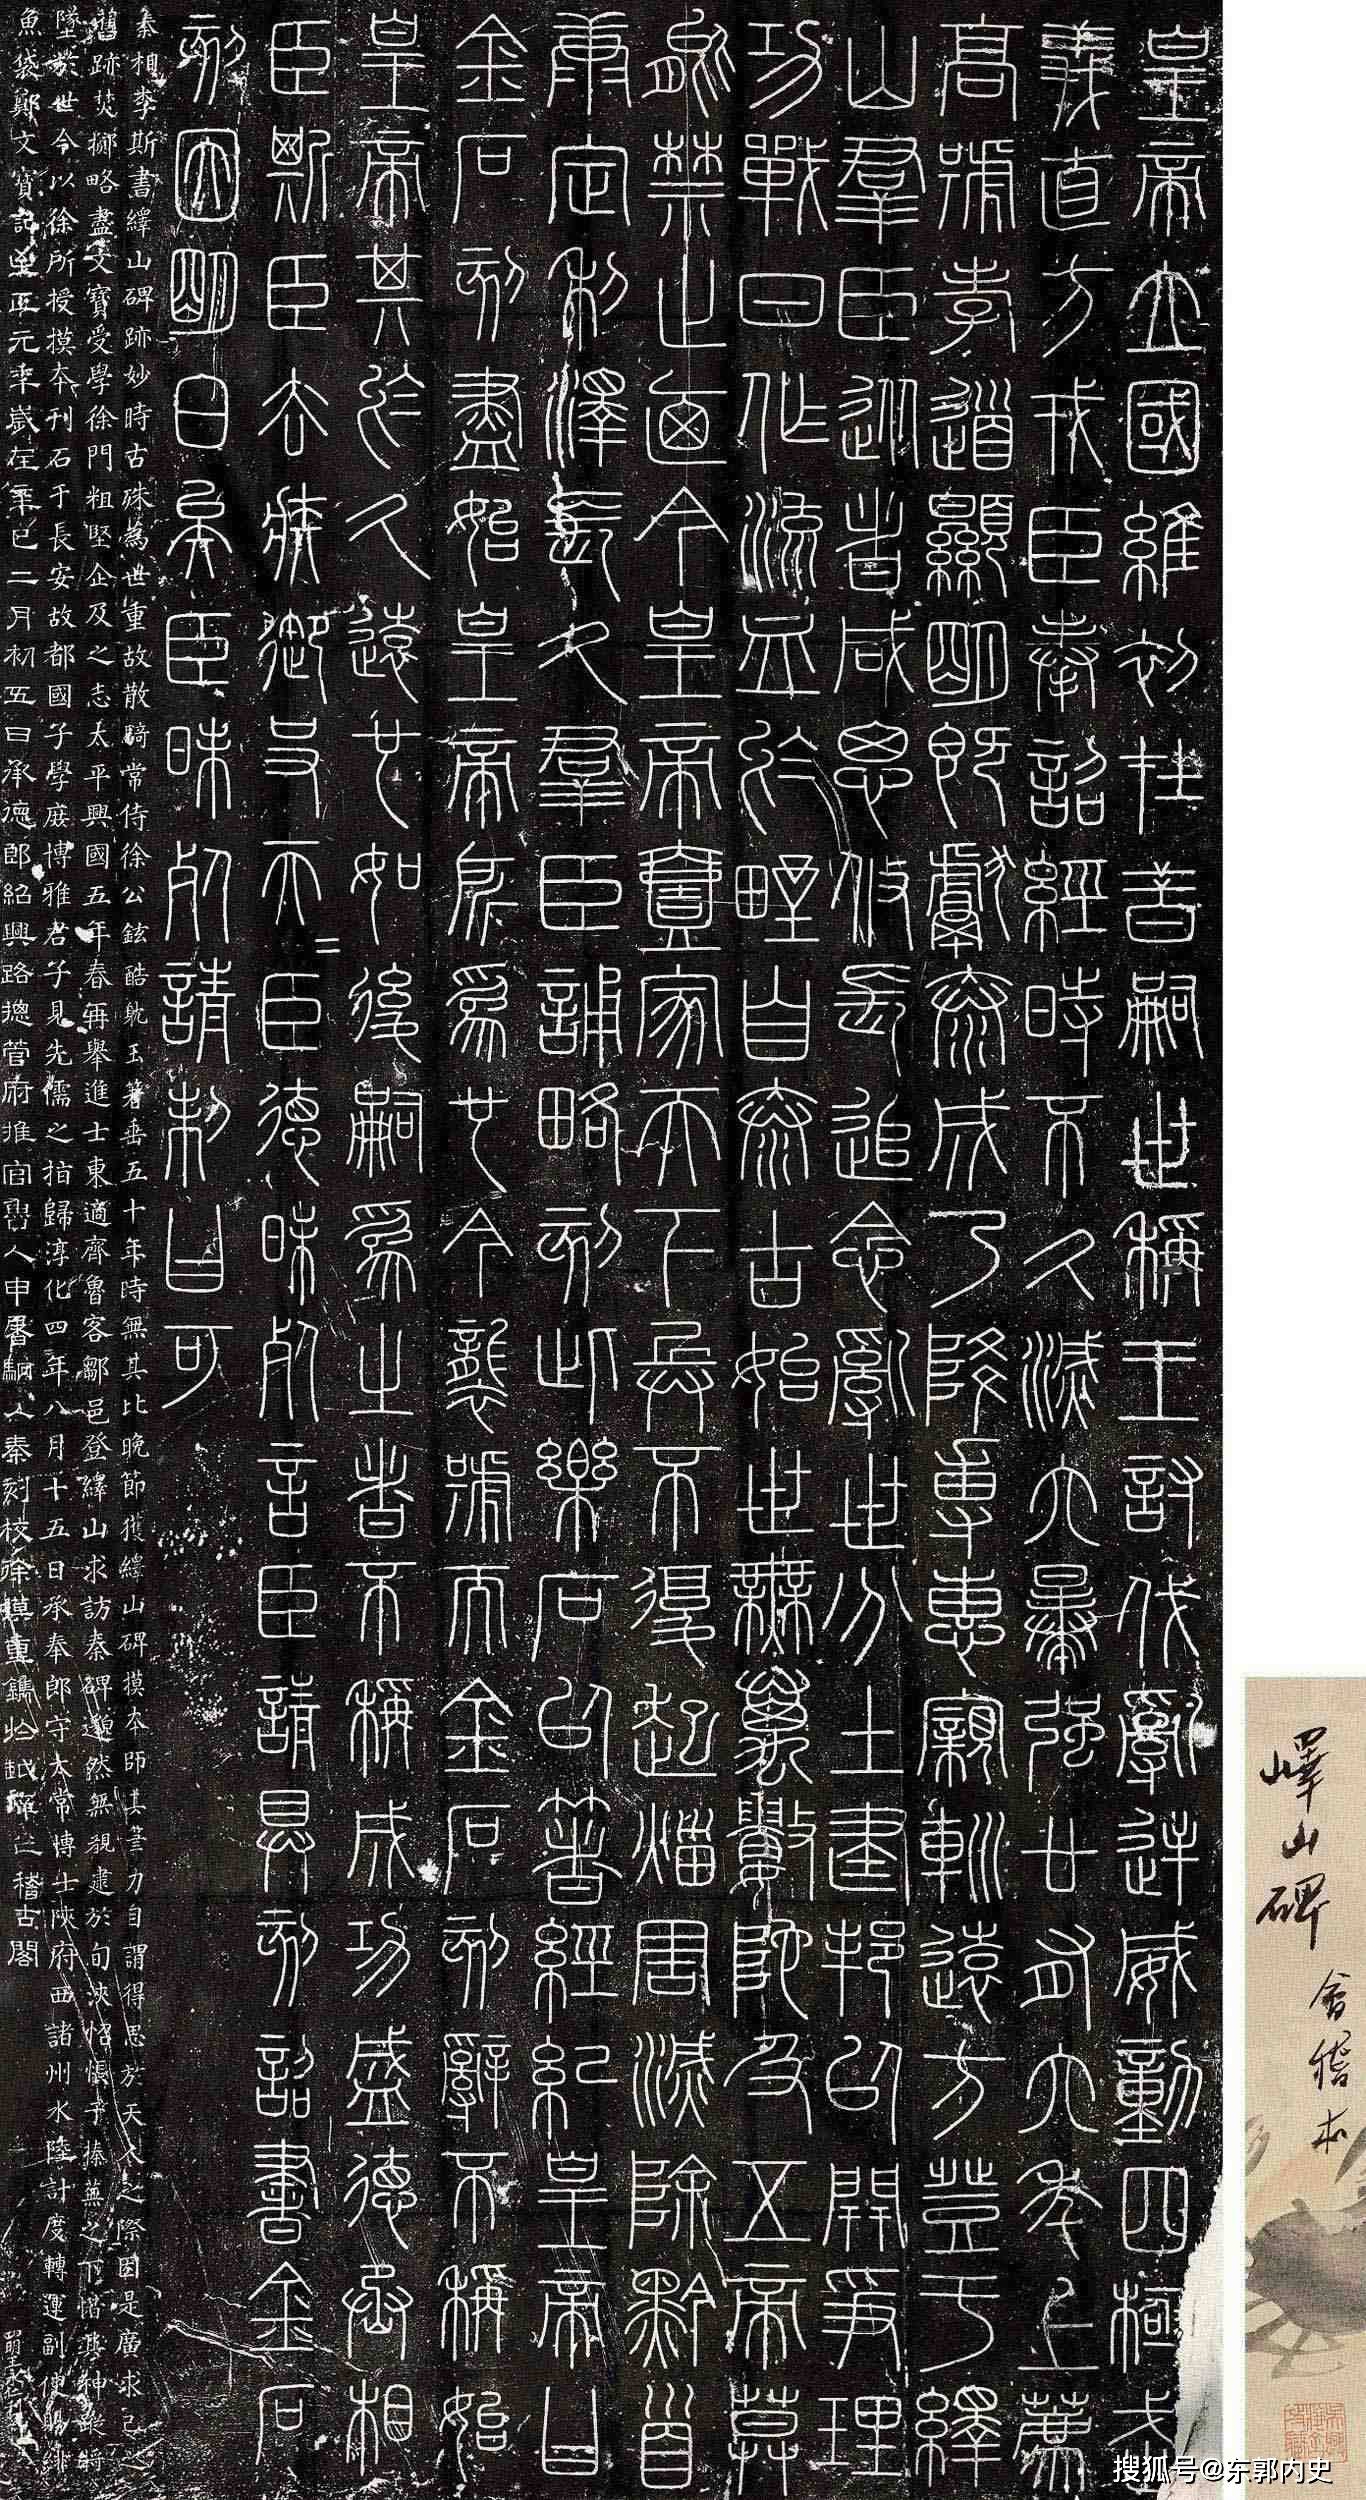 皇帝立國維初在昔嗣世稱王討伐亂逆威動四極武
義直方戎臣奉詔經時不久滅六暴強廿有六年上薦
高號孝道顯明既獻泰成乃降專惠寴䡅遠方登于繹
山羣臣從者咸思攸長追念亂世分土建邦以開爭理
功戰日作流血於野自泰古始世無萬數陀及五帝莫
能禁止廼今皇帝壹家天下兵不復起災害滅除黔首
康定利澤長久羣臣誦略刻此樂石以著經紀皇帝曰
金石刻盡始皇帝所為也今襲號而金石刻辭不稱始
皇帝其於久遠也如後嗣為之者不稱成功盛德丞相
臣斯臣去疾御史夫=臣德昧死言臣請具刻詔書金石
刻因明白矣臣昧死請制曰可
秦相李斯書繹山碑跡妙時古殊為世重故散騎常侍徐公鉉酷躭玉箸垂五十年時無其比晚節獲繹山碑摸本師其筆力自謂得思於天人之際因是廣求己之
舊跡焚擲略盡文寶受學徐門粗堅企及之志太平興國五年春再舉進士東適齊魯客鄒邑登繹山求訪秦碑邈然無覩逮於旬浹怊悵于榛蕪之下惜其神蹤將
墜於世今以徐所授摸本刊石于長安故都國子學庶博雅君子見先儒之指歸淳化四年八月十五日承奉郎守太常博士陝府西諸州水陸計度轉運副使賜緋
魚袋鄭文寶記至正元年歲在辛巳二月初五日承德郎紹興路摠管府推官曹人申屠駉以秦刻校徐摸重鐫於越庠之稽古閣
嶧山碑
會稽本
搜狐号@东郭内史